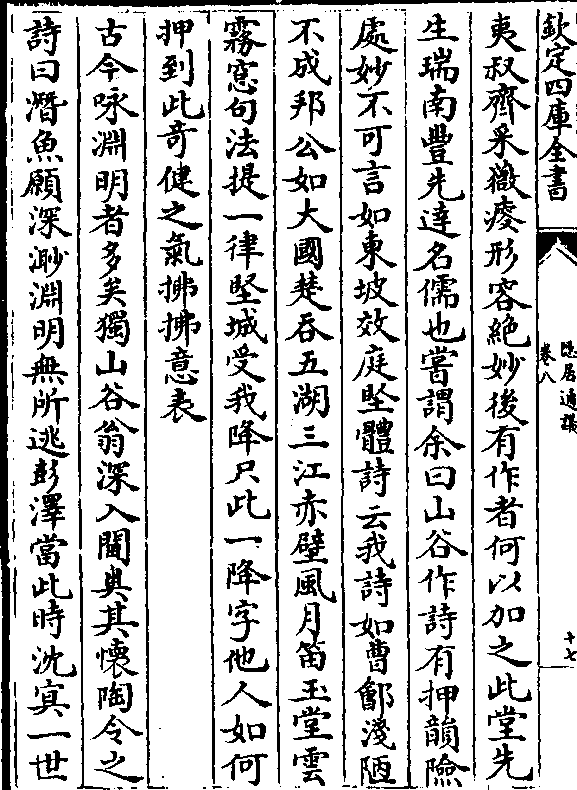 欽定四庫全書
隠居通議
卷八
十七
夷叔齊采薇瘦形容絶妙後有作者何以加之此堂先
生瑞南豐先達名儒也嘗謂余曰山谷作詩有押韻險
處妙不可言如東坡效庭堅體詩云我詩如曹鄶淺陋
不成邦公如大國楚吞五湖三江赤壁風月笛玉堂雲
霧窓句法提一律堅城受我降只此一降字他人如何
押到此奇健之氣拂拂意表
古今咏淵明者多矣獨山谷翁深入閫奥其懷陶令之
詩曰潛魚願深渺淵明無所逃彭澤當此時沈寞一世